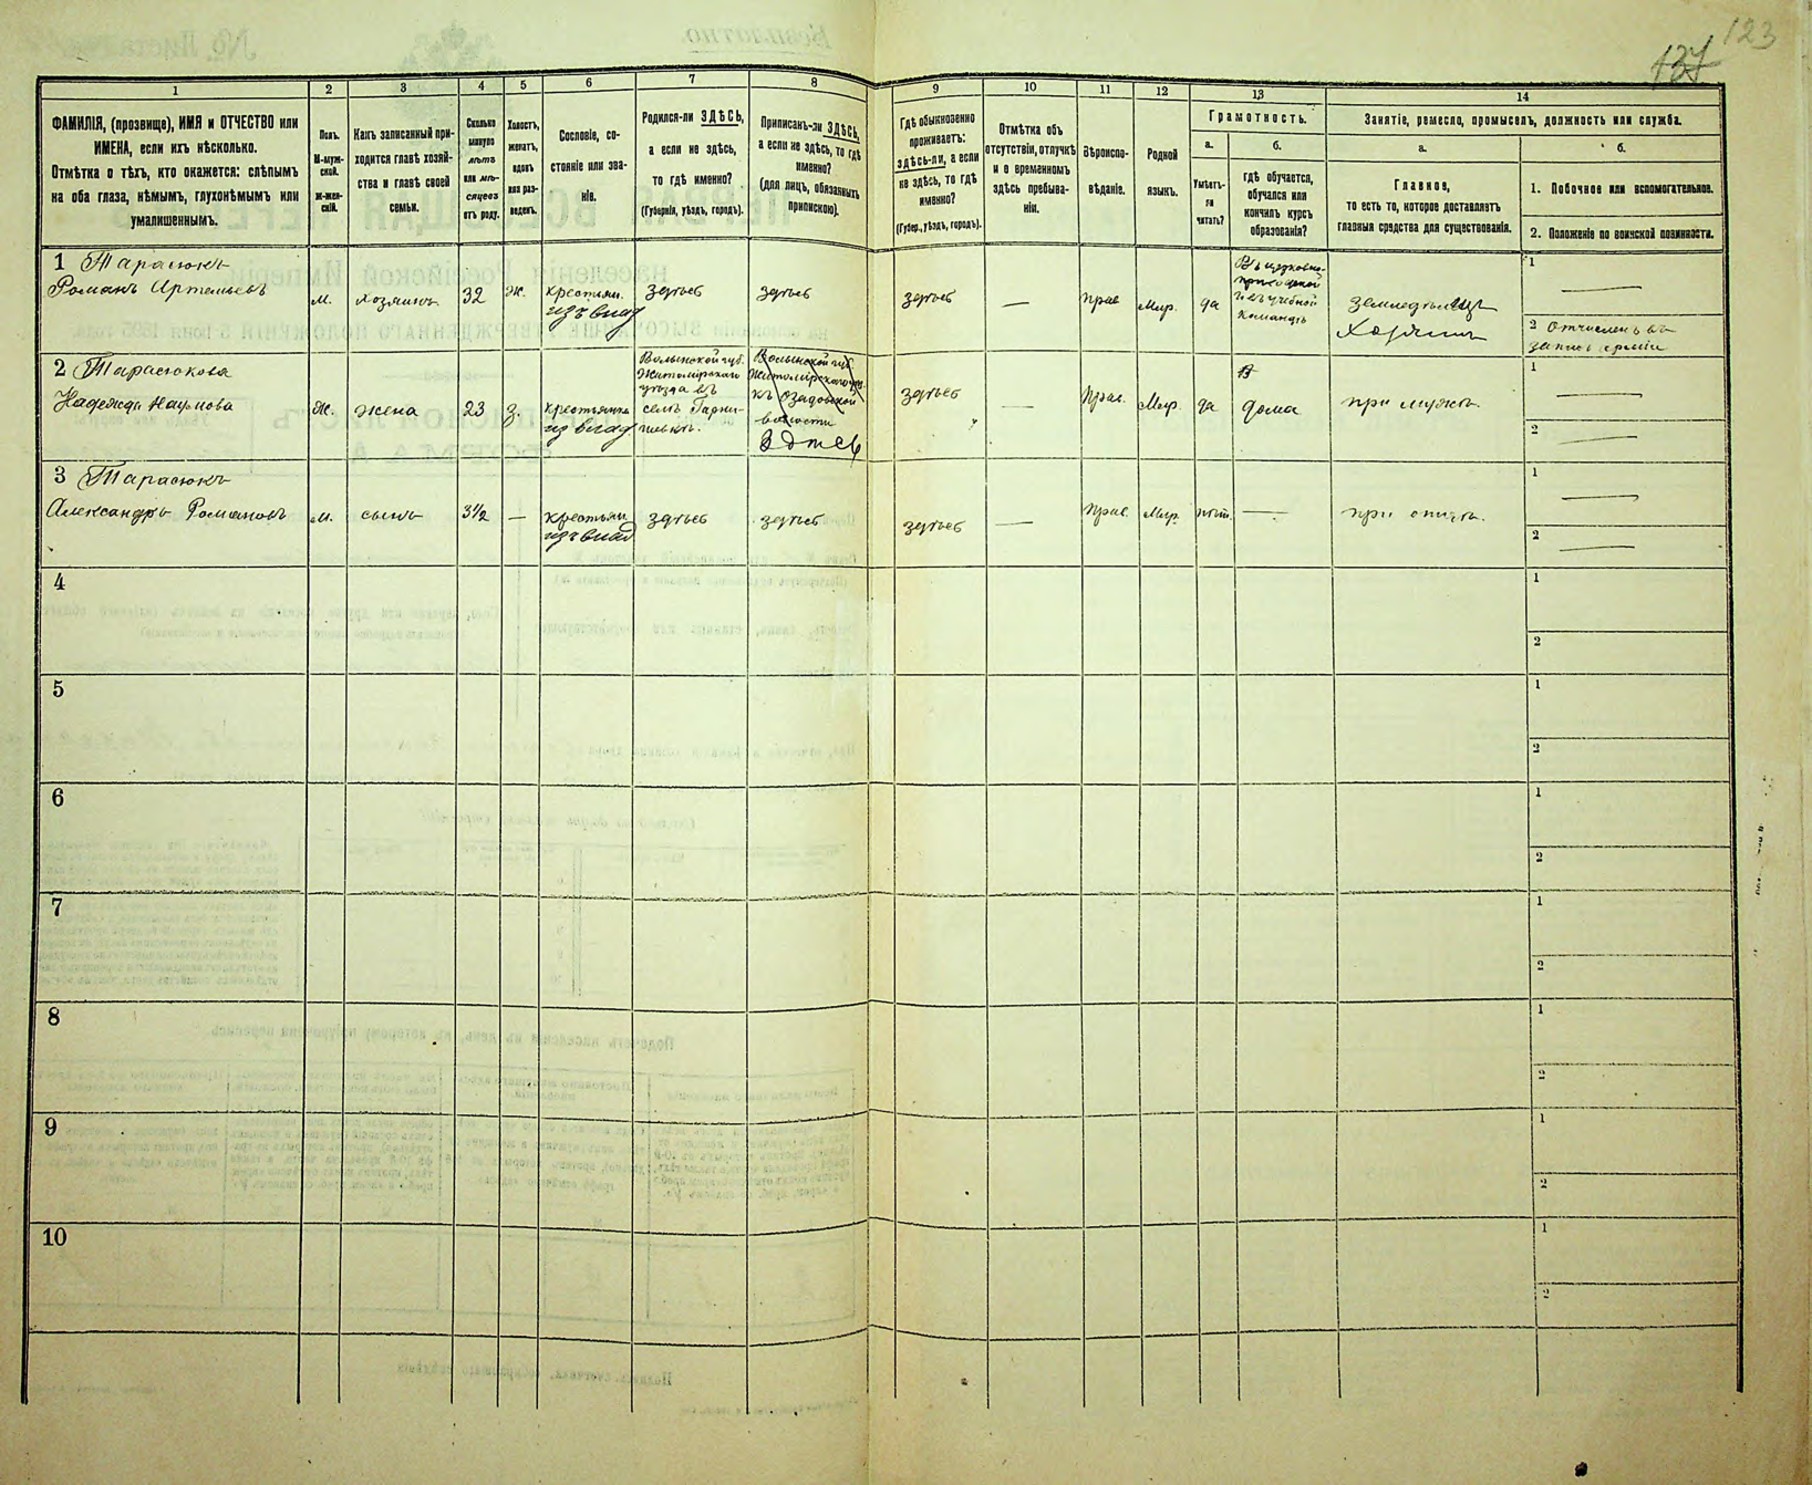 123
137
1
2
3
4
5
6
7
8
9
10
11
12
13
14
ФАМИЛІЯ, (прозвище), ИМЯ и ОТЧЕСТВО или
ИМЕНА, если ихъ нѣсколько.
Отмѣтка о тѣхъ, кто окажется: слѣпымъ
на оба глаза, нѣмымъ, глухонѣмымъ или
умалишеннымъ.
Полъ.
М-муж-
ской.
Ж-жен-
скій.
Какъ записанный при-
ходится главѣ хозяй-
ства и главѣ своей
семьи.
Сколько
минуло
лѣтъ
или мѣ-
сяцевъ
отъ роду.
Холостъ,
женатъ,
вдовъ
или раз-
веденъ.
Сословіе, со-
стояніе или зва-
ніе.
Родился-ли ЗДѢСЬ,
а если не здѣсь,
то гдѣ именно?
(Губернія, уѣздъ, городъ).
Приписанъ-ли ЗДѢСЬ,
а если не здѣсь, то гдѣ
именно?
(для лицъ, обязанныхъ
припискою).
Гдѣ обыкновенно
проживаетъ:
здѣсь-ли, а если
не здѣсь, то гдѣ
именно?
(Губер., уѣздъ, городъ).
Отмѣтка объ
отсутствіи, отлучкѣ
и о временномъ
здѣсь пребыва-
ніи.
Вѣроиспо-
вѣданіе.
Родной
языкъ.
Грамотность.
а.
Умѣетъ-
ли
читать?
б.
гдѣ обучается,
обучался или
кончилъ курсъ
образованія?
Занятіе, ремесло, промыселъ, должность или служба.
а.
Главное,
то есть то, которое доставляетъ
главныя средства для существованія.
б.
1. Побочное или вспомогательное.
2. Положеніе по воинской повинности.
1 Тарасюкъ
Романъ Артемьевъ
м.
хозяинъ
32
ж.
крестьян.
изъ влад
здѣсь
здѣсь
здѣсь
—
прав
Мир.
да
Въ церковно-
приходской
и въ учебной
командѣ
земледѣлецъ
Хозяинъ
1 —
2 Отчисленъ въ
запасъ арміи
2 Тарасюкова
Надежда Наумова
Ж.
жена
23
з.
крестьянка
из влад
Волынской губ.
Житомірскаго
уѣзда въ
селѣ
Волынской губ.
Житомірскаго у.
волости
Здѣсь
здѣсь
—
Прав.
Мир.
да
дома
при мужѣ.
1 —
2 —
3 Тарасюкъ
Александръ Романовъ
м.
сынъ
3½
—
крестьян
изъ влад
здѣсь
здѣсь
здѣсь
—
Прав.
Мир.
нѣт.
—
при отцѣ.
1 —
2 —
4
1
2
5
1
2
6
1
2
7
1
2
8
1
2
9
1
2
10
1
2